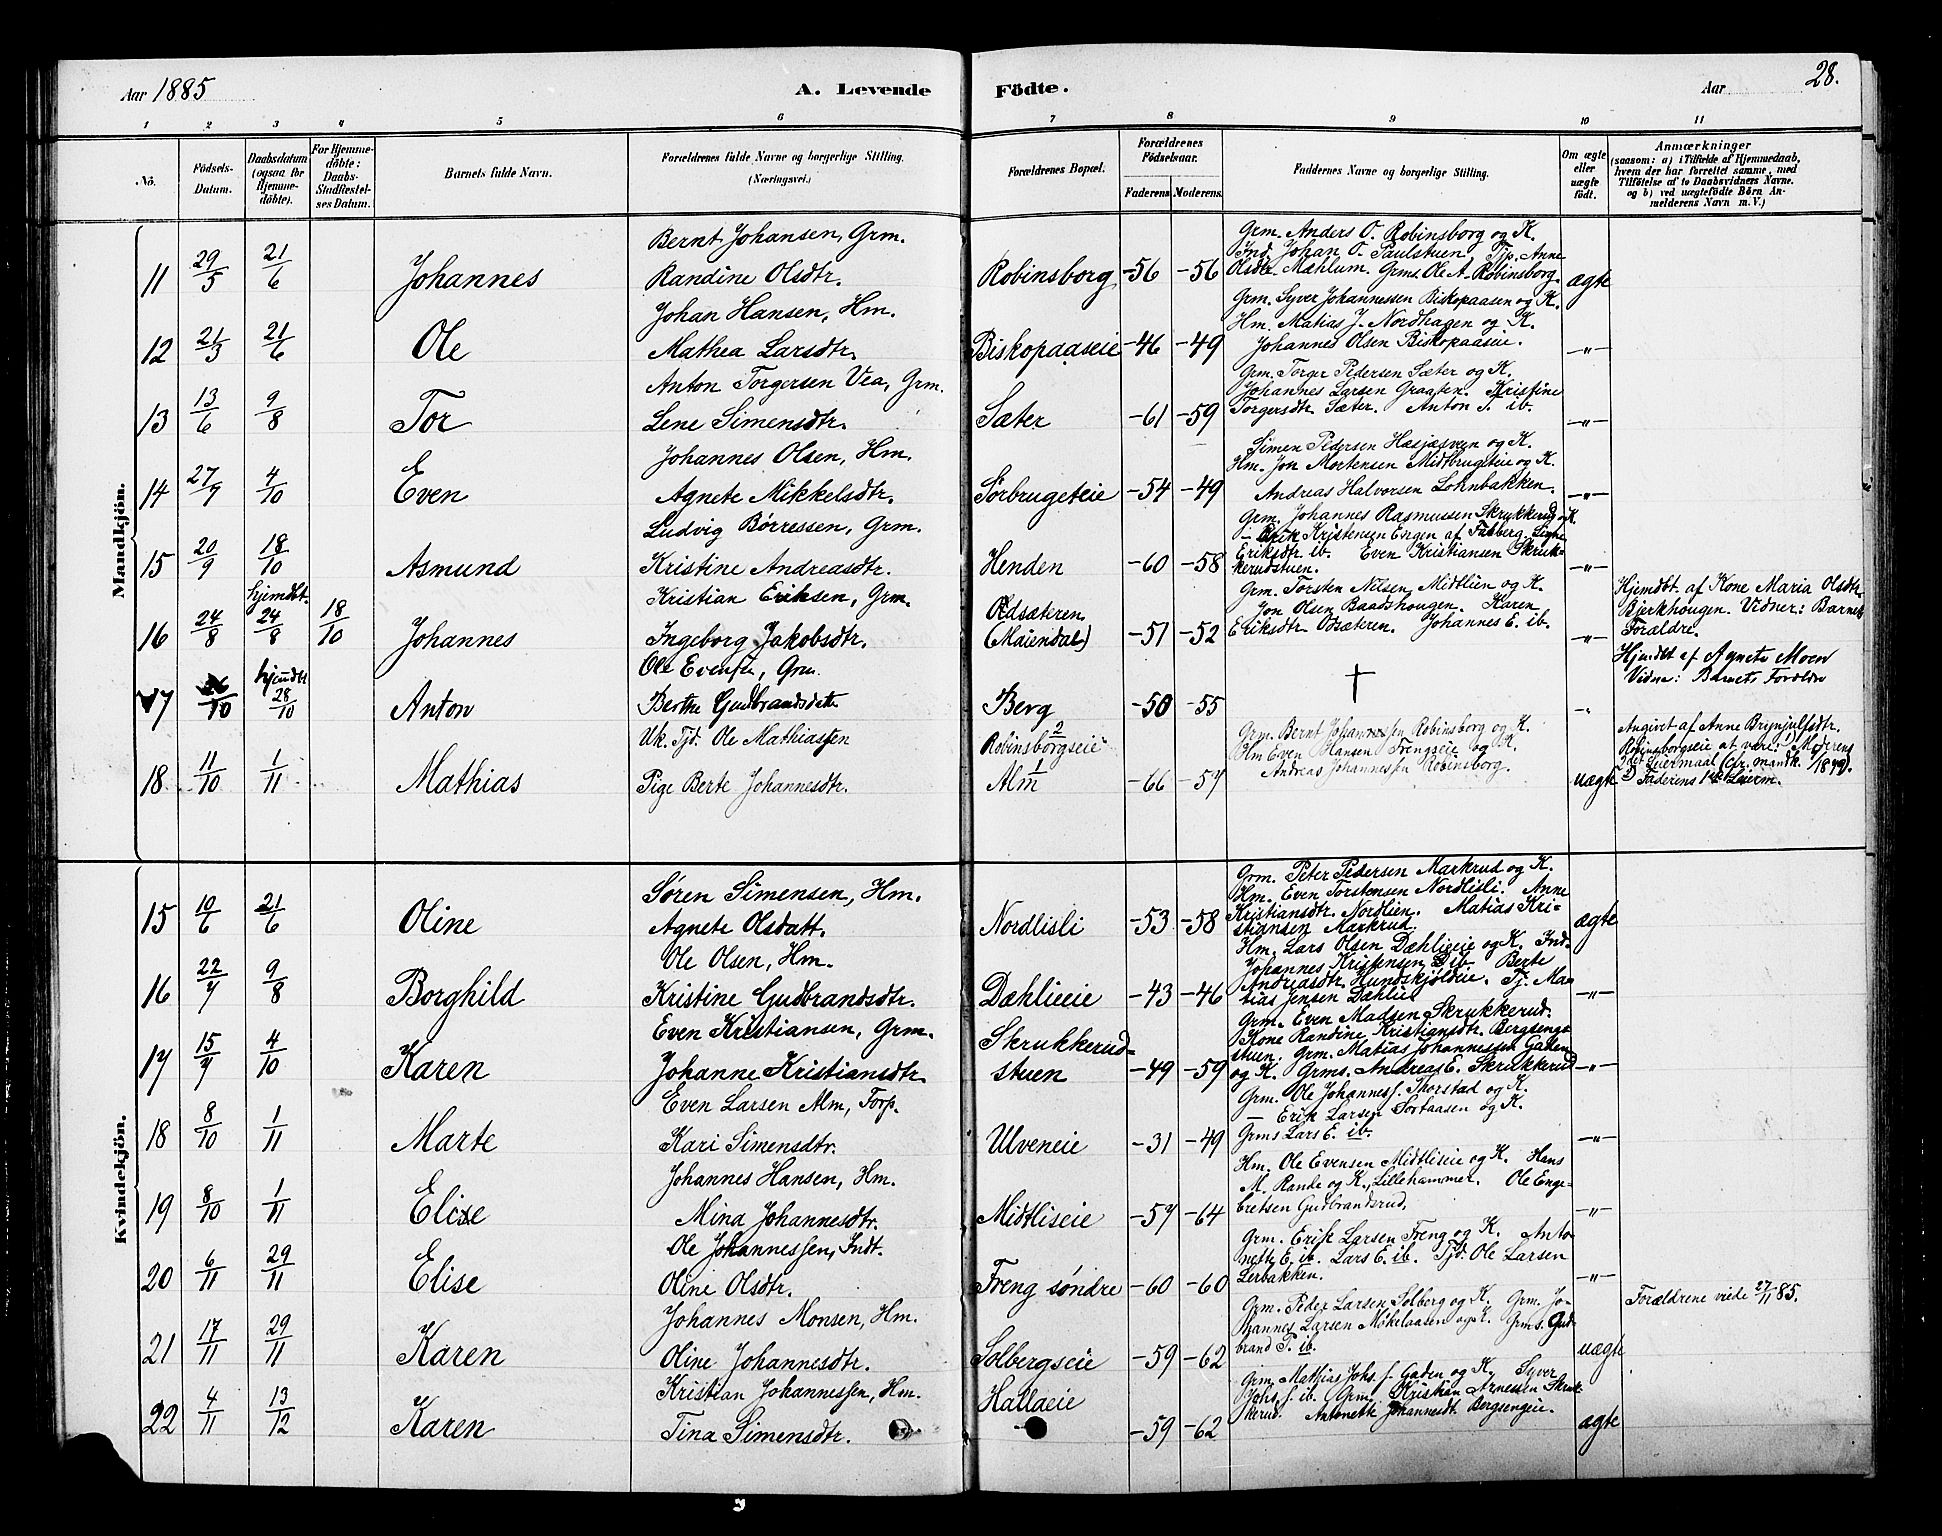 Aar 1885
A. Levende Födte.
Aar 28.
1 2 3 4 5 6 7 8 9 10 11
No.
Födsels-Datum.
Daabsdatum (ogsaa for Hjemme-döbte).
For Hjemme-döbte: Daabs-Stadfæstel-ses Datum.
Barnets fulde Navn.
Forældrenes fulde Navne og borgerlige Stilling. (Næringsvei.)
Forældrenes Bopæl.
Forældrenes Födselsaar.
Faderens Moderens.
Faddernes Navne og borgerlige Stilling.
Om ægte eller uægte födt.
Anmærkninger
(saasom: a) i Tilfælde af Hjemmedaab, hvem der har forrettet samme, med Tilföielse af to Daabsvidners Navne. og b) ved uægtefödte Börn An-melderens Navn m. V.)
Mandkjön.
Bernt Johansen, Grm.
11 29/5 21/6 Johannes Randine Olsdtr. Robinsborg -56 -56 ægte
Grm. Anders O. Robinsborg og K.
Ind. Johan O. Paulstuen. Tjp. Anne
Olsdtr. Mæhlum. Grms. Ole A. Robinsborg
Johan Hansen, Hm.
12 21/3 21/6 Ole Mathea Larsdtr. Biskopaaseie -46 -49 -"-
Grm. Syver Johannessen Biskopaasen og K.
Hm. Matias J. Nordhagen og K.
Johannes Olsen Biskopaaseie.
Anton Torgersen Vea, Grm.
13 13/6 9/8 Tor Lene Simensdtr. Sæter -61 -59 -"-
Grm. Torger Pedersen Sæter og K.
Johannes Larsen Graaten. Kristine
Torgersdtr. Sæter. Anton T. ib.
Johannes Olsen, Hm.
14 27/7 4/10 Even Agnete Mikkelsdtr. Sørbrugeteie -54 -49 -"-
Simen Pedersen Hasjasveen og K.
Hm. Jon Mortensen Midtbrugeteie og K.
Andreas Halvorsen Lohnbakken.
Ludvig Børressen, Grm.
15 20/9 18/10 Asmund Kristine Andreasdtr. Henden -60 -58 -"-
Grm. Johannes Rasmussen Skrukkerud og K.
- Erik Kristensen Engen af Faaberg. Signe
Eriksdtr. ib. Even Kristiansen Skruk-
kerudstuen.
Kristian Eriksen, Grm.
16 24/8 hjemdbt. 24/8 18/10 Johannes Ingeborg Jakobsdtr. Odsæteren (Maiendal) -51 -52 -"-
Grm. Torsten Nilsen Midtlien og K.
Jon Olsen Baadshougen. Karen
Eriksdtr. Odsæteren. Johannes E. ib.
Hjemdbt. af Kone Maria Olsdtr.
Bjerkhougen. Vidner: Barnets
Forældre.
Ole Evensen, Grm.
17 /10 hjemdbt 28/10 Anton Berthe Gudbrandsdatter Berg -50 -55 -"-
†
Hjemdbt af Agnete Moen
Vidne: Barnets Forældre
Uk. Tjd. Ole Mathiassen Robinsborgseie 2
18 11/10 1/11 Mathias Pige Berte Johannesdtr. Alm 1 -66 -57 uægte
Grm. Bernt Johannessen Robinsborg og K.
Hm Even Hansen Frengseie og K.
Andreas Johannessen Robinsborg.
Angivet af Anne Brynjulfsdtr.
Robinsborgseie at være: 1) Moderens
2det Leiermaal (cfr. mandk. /1879).
2) Faderens 1ste Leierm.
Kvindekjön.
Søren Simensen, Hm.
15 10/6 21/6 Oline Agnete Olsdatt. Nordlisli -53 -58 ægte
Grm. Peter Pedersen Markrud og K.
Hm. Even Torstensen Nordlisli. Anne
Kristiansdtr. Nordlien. Matias Kri-
stiansen Markrud.
Ole Olsen, Hm.
16 22/7 9/8 Borghild Kristine Gudbrandsdtr. Dæhlieeie -43 -46 -"-
Hm. Lars Olsen Dæhlieeie og K. Ind.
Johannes Kristensen ib. Berte
Andreasdtr. Hundskjoldeie. Tj. Ma-
tias Jensen Dæhlie
Even Kristiansen, Grm.
17 15/7 4/10 Karen Johanne Kristiansdtr. Skrukkerud-stuen -49 -59 -"-
Grm. Even Madsen Skrukkerud.
Kone Randine Kristiansdtr. Bergsengs
stuen. Grm. Matias Johannessen Gaden
og K. Grms. Andreas E. Skrukkerud
Even Larsen Alm, Forp.
18 8/10 1/11 Marte Kari Simensdtr. Ulveneie -31 -49 -"-
Grm. Ole Johanness. Thorstad og K.
- Erik Larsen Sortaasen og K.
Grms Lars E. ib.
Johannes Hansen, Hm.
19 8/10 1/11 Elise Mina Johannesdtr. Midtliseie -57 -64 -"-
Hm. Ole Evensen Midtliseie og K. Hans
M. Rande og K., Lillehammer. Ole Enge-
bretsen Gudbrandsrud.
Ole Johannessen, Indt.
20 6/11 29/11 Elise Oline Olsdtr. Freng søndre -60 -60 -"-
Grm. Erik Larsen Freng og K. Anto
nette E. ib. Lars E. ib. Tjd. Ole Larsen
Lerbakken.
Johannes Monsen, Hm.
21 17/11 29/11 Karen Oline Johannesdtr. Solbergseie -59 -62 uægte
Grm. Peder Larsen Solberg og K. Grm. Jo-
hannes Larsen Mökelaasen og K. Grms. Gud-
brand P. ib.
Forældrene viede 27/11 85.
Kristian Johannessen, Hm.
22 4/11 13/12 Karen Tina Simensdtr. Hallaeie -59 -62 ægte
Grm. Mathias Johs. s. Gaden og K. Syver
Johs. s. ib. Grm. Kristian Arnessen Skruk-
kerud. Antonette Johannesdt. Bergsengeie.